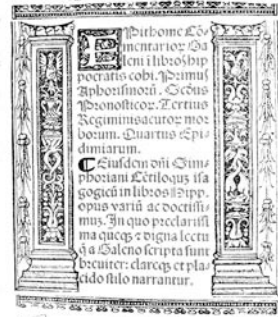 EPithome Cō-
mentarioꝝ Ga
leni i libꝛos hip
pocratis cohi. Pꝛimus
Aphoꝛismoꝝ. Scđus
Pꝛonosticoꝝ. Tertius
Regiminisacutoꝝ moꝛ
boꝛum. Quartus Epi-
dimiarum.
¶ Eiusdem dñi Sim-
phoꝛiani Cētiloquiū isa
gogicū in libꝛos Hipp.
opus variū ac doctissi
mus. In quo pꝛeclarissi
ma quecꝫ ⁊ digna lectu
q̄ a Galeno scripta sunt
bꝛeuiter: clarecꝫ et pla-
cido stilo narrantur.